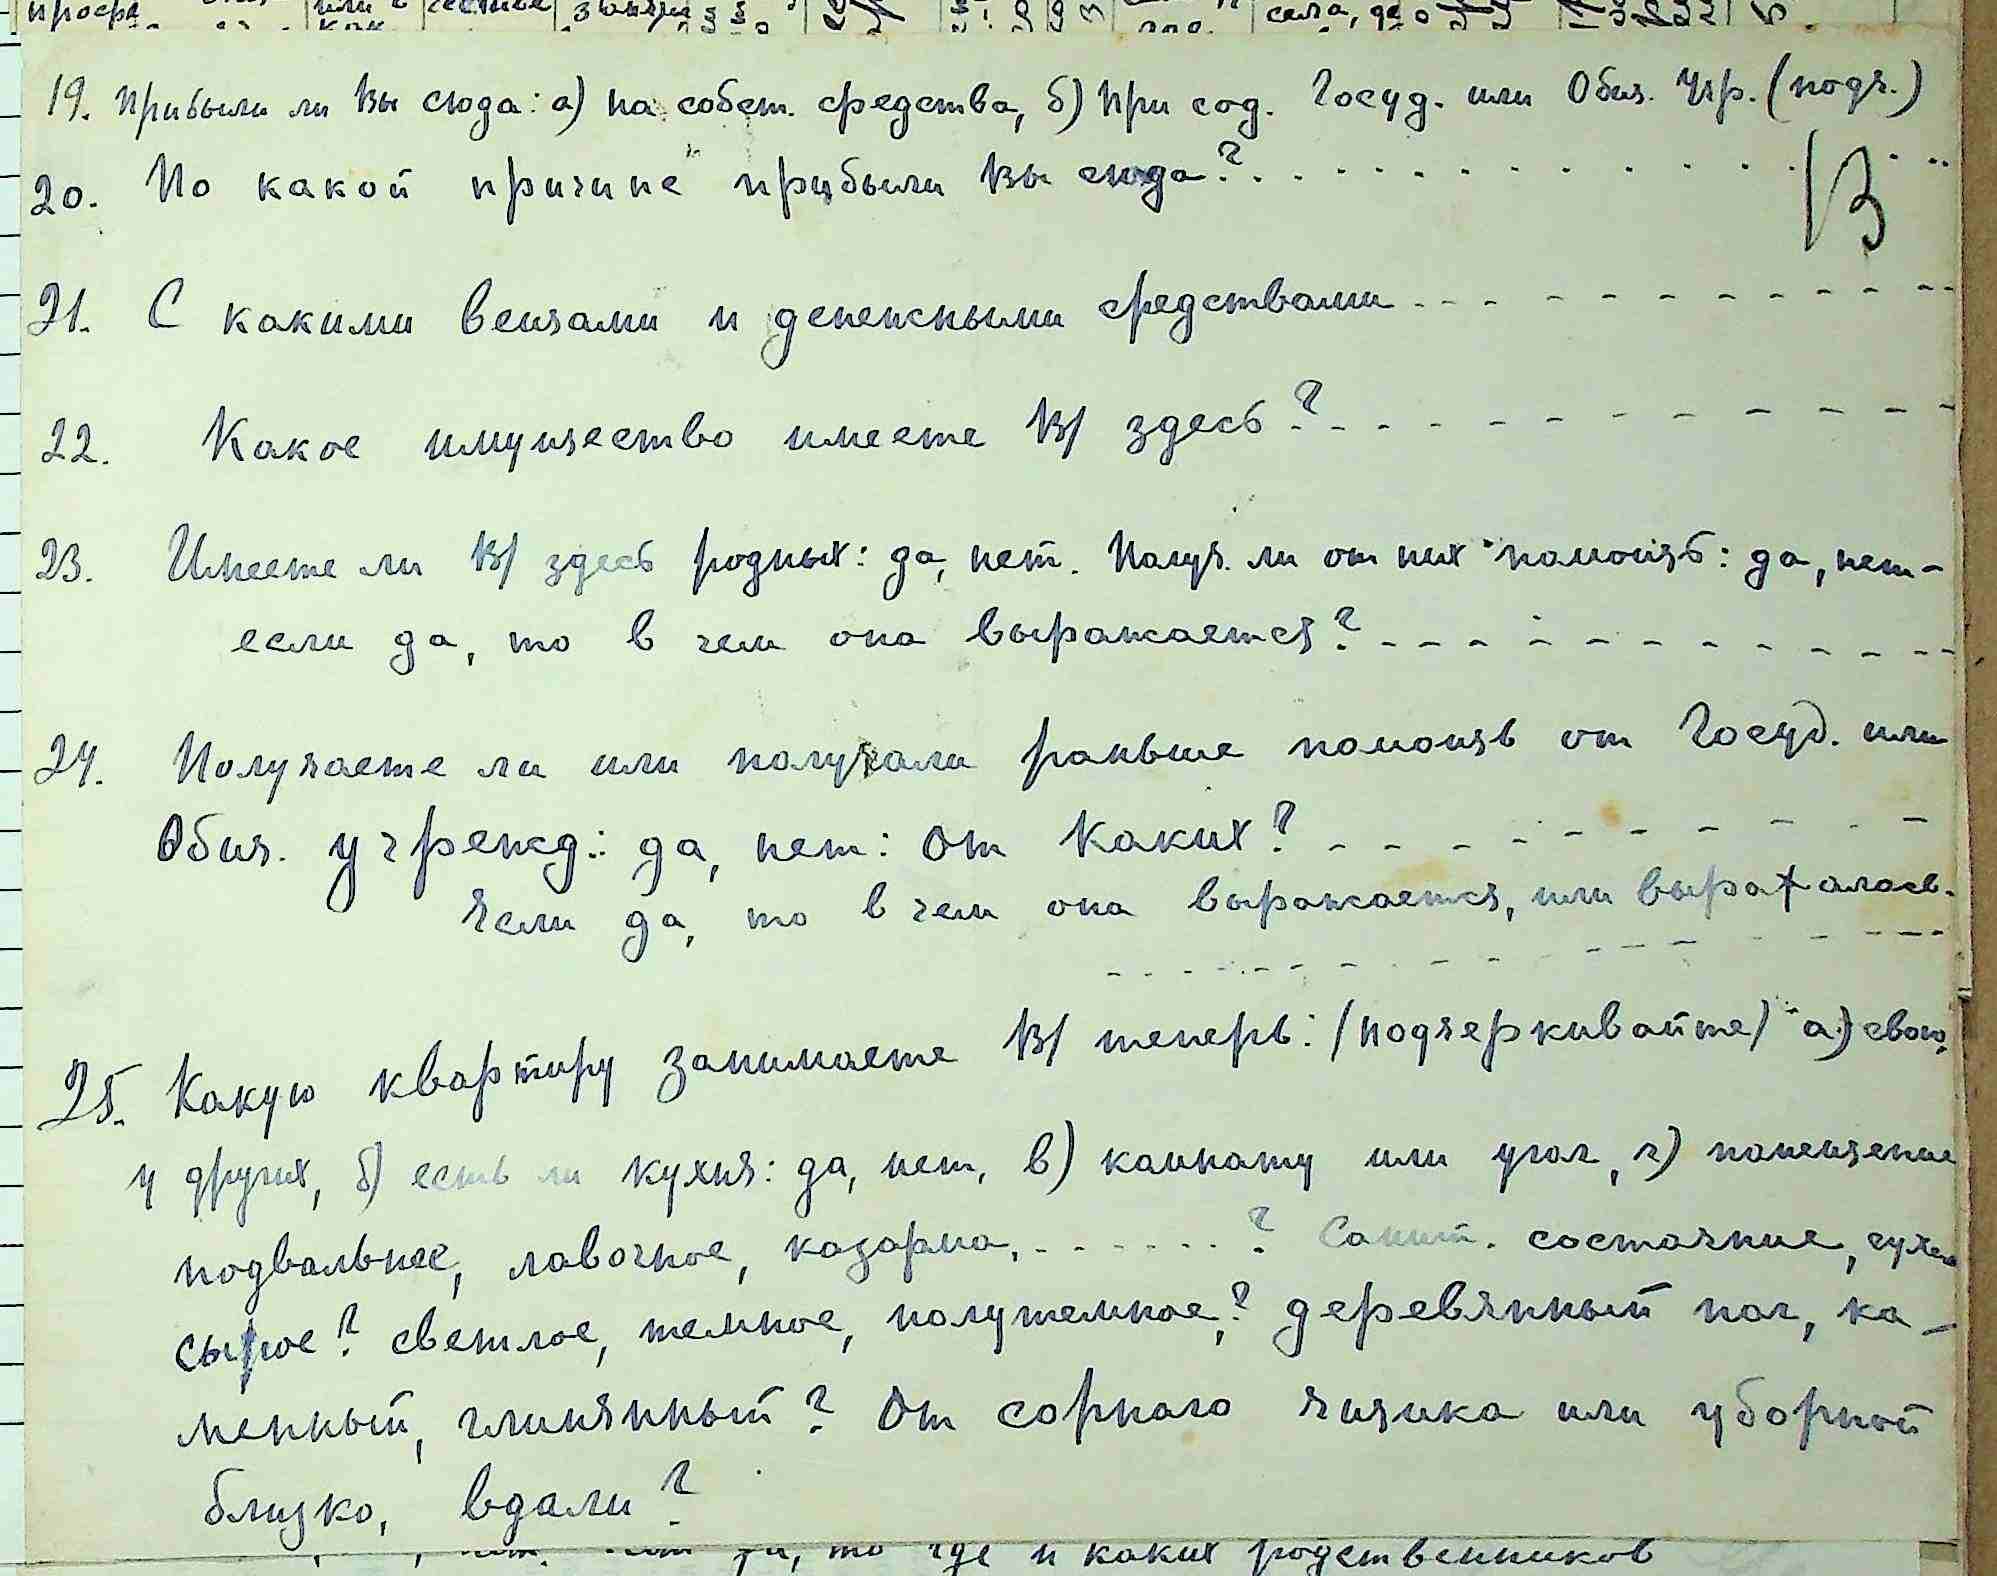 19. Прибыли ли Вы сюда: а) на собст. средства, б) при сод. Госуд. или Общ. Учр. (подч.)
20. По какой причине прибыли Вы сюда? . . . . . . . . . . . .
В
21. С какими вещами и денежными средствами - - - - - - - - - - -
22. Какое имущество имеете В/ здесь? - - - - - - - - - - -
23. Имеете ли В/ здесь родных: да, нет. Получ. ли от них помощь: да, нет -
если да, то в чем она выражается? - - - - - - - - - - -
24. Получаете ли или получали раньше помощь от Госуд. или
Общ. учрежд.: да, нет: от каких? - - - - - - - - - -
Если да, то в чем она выражается, или выражалась.
- - - - - - - - - - - - - -
25. Какую квартиру занимаете В/ теперь: /подчеркивайте/ а) свою,
у других, б) есть ли кухня: да, нет, в) комнату или угол, г) помещение
подвальное, лавочное, казарма, - - - - - - - ? Санит. состояние, сухое
сырое? светлое, темное, полутемное,? деревянный пол, ка-
менный, глинянный? От сорного ящика или уборной
близко, вдали?
да, то где и каких родственников